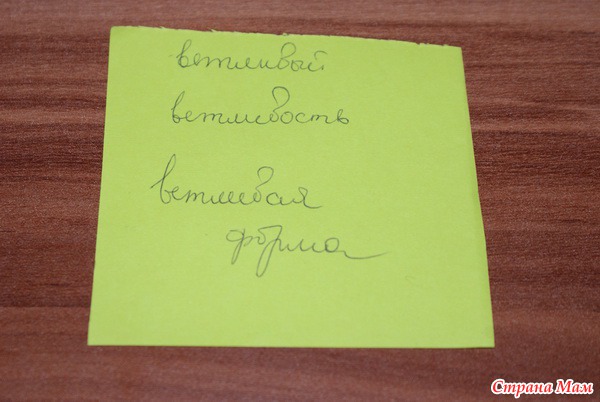 ветливый
ветливость
ветливая
форма
Страна Мам